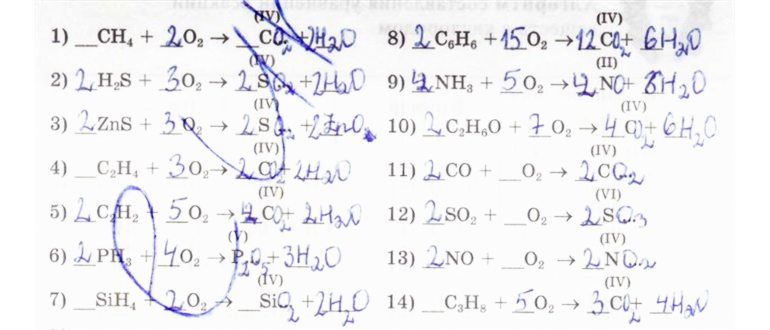 1) __CH₄ + 2O₂ → __CO₂ (IV) + 2H₂O
2) 2H₂S + 3O₂ → 2SO₂ (IV) + 2H₂O
3) 2ZnS + 3O₂ → 2SO₂ (IV) + 2ZnO
4) __C₂H₄ + 3O₂ → 2CO₂ (IV) + 2H₂O
5) 2C₂H₂ + 5O₂ → 4CO₂ (IV) + 2H₂O
6) 2PH₃ + 4O₂ → P₂O₅ (V) + 3H₂O
7) __SiH₄ + 2O₂ → __SiO₂ (IV) + 2H₂O
8) 2C₆H₆ + 15O₂ → 12CO₂ (IV) + 6H₂O
9) 4NH₃ + 5O₂ → 4NO (II) + 6H₂O
10) 2C₂H₆O + 7O₂ → 4CO₂ (IV) + 6H₂O
11) 2CO + __O₂ → 2CO₂ (IV)
12) 2SO₂ + __O₂ → 2SO₃ (VI)
13) 2NO + __O₂ → 2NO₂ (IV)
14) __C₃H₈ + 5O₂ → 3CO₂ (IV) + 4H₂O